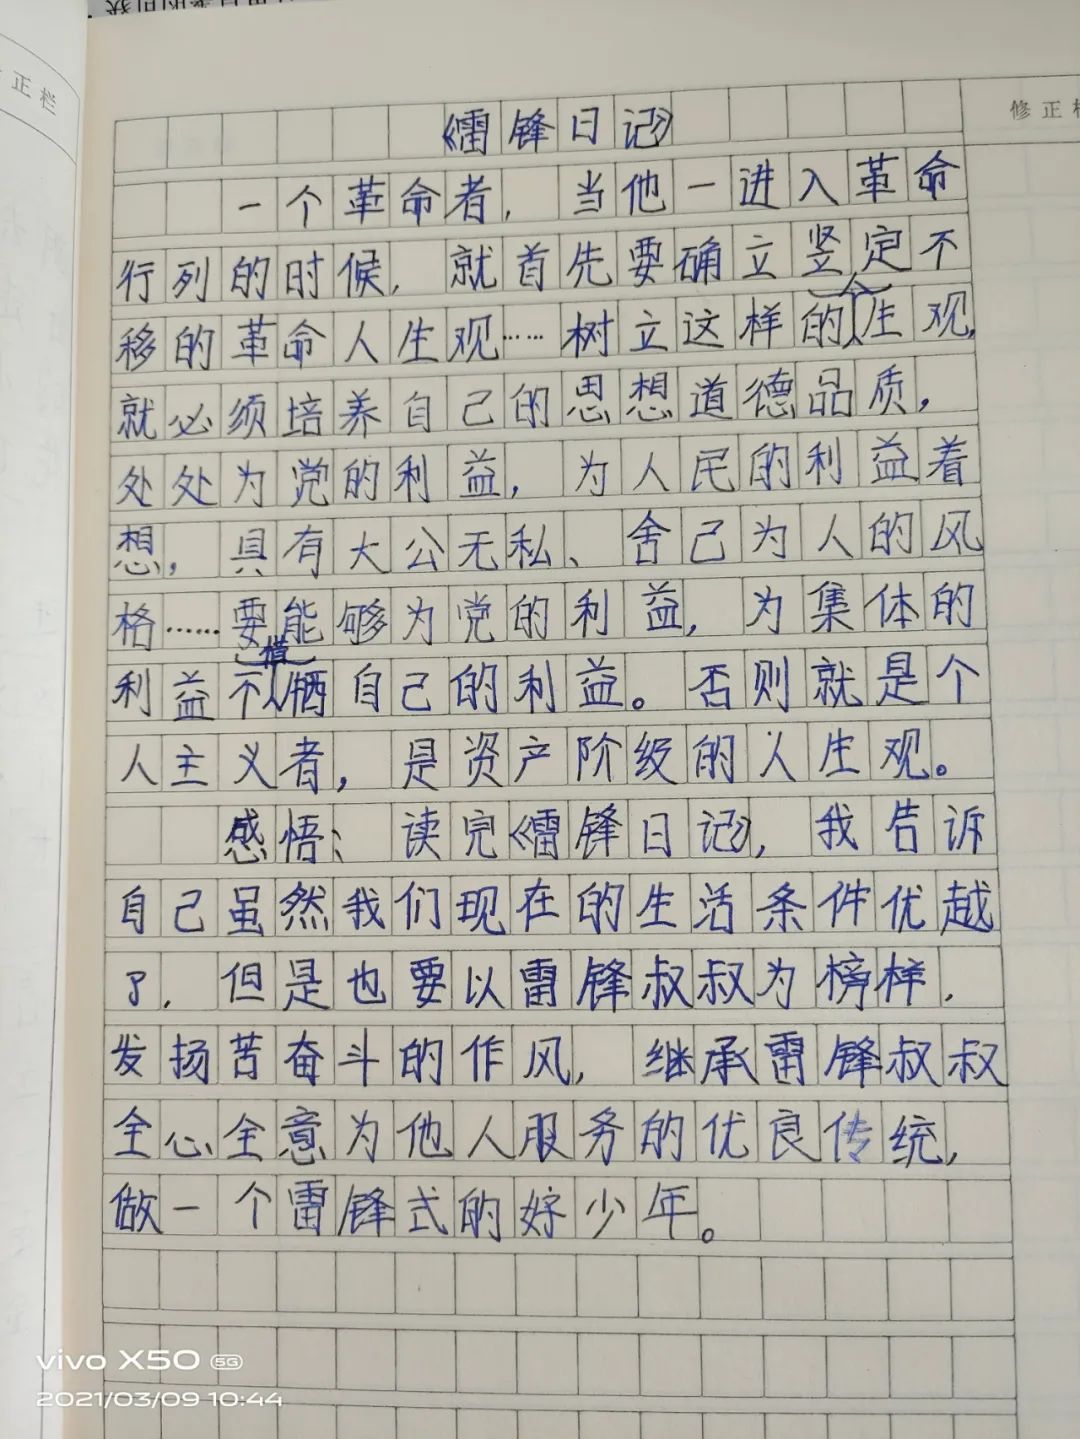 修正栏
《雷锋日记》
一个革命者，当他一进入革命
行列的时候，就首先要确立坚定不
移的革命人生观……树立这样的人生观，
就必须培养自己的思想道德品质，
处处为党的利益，为人民的利益着
想，具有大公无私、舍己为人的风
格……要能够为党的利益，为集体的
利益不惜牺牲自己的利益。否则就是个
人主义者，是资产阶级的人生观。
感悟：读完《雷锋日记》，我告诉
自己虽然我们现在的生活条件优越
了，但是也要以雷锋叔叔为榜样，
发扬苦奋斗的作风，继承雷锋叔叔
全心全意为他人服务的优良传统，
做一个雷锋式的好少年。
正栏
vivo X50 5G
2021/03/09 10:44